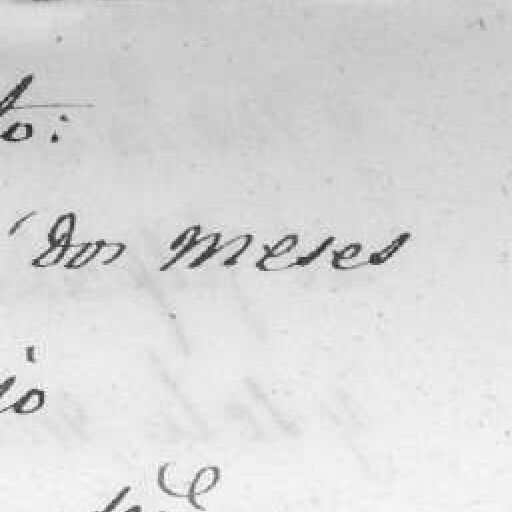 to:
dos meses
io